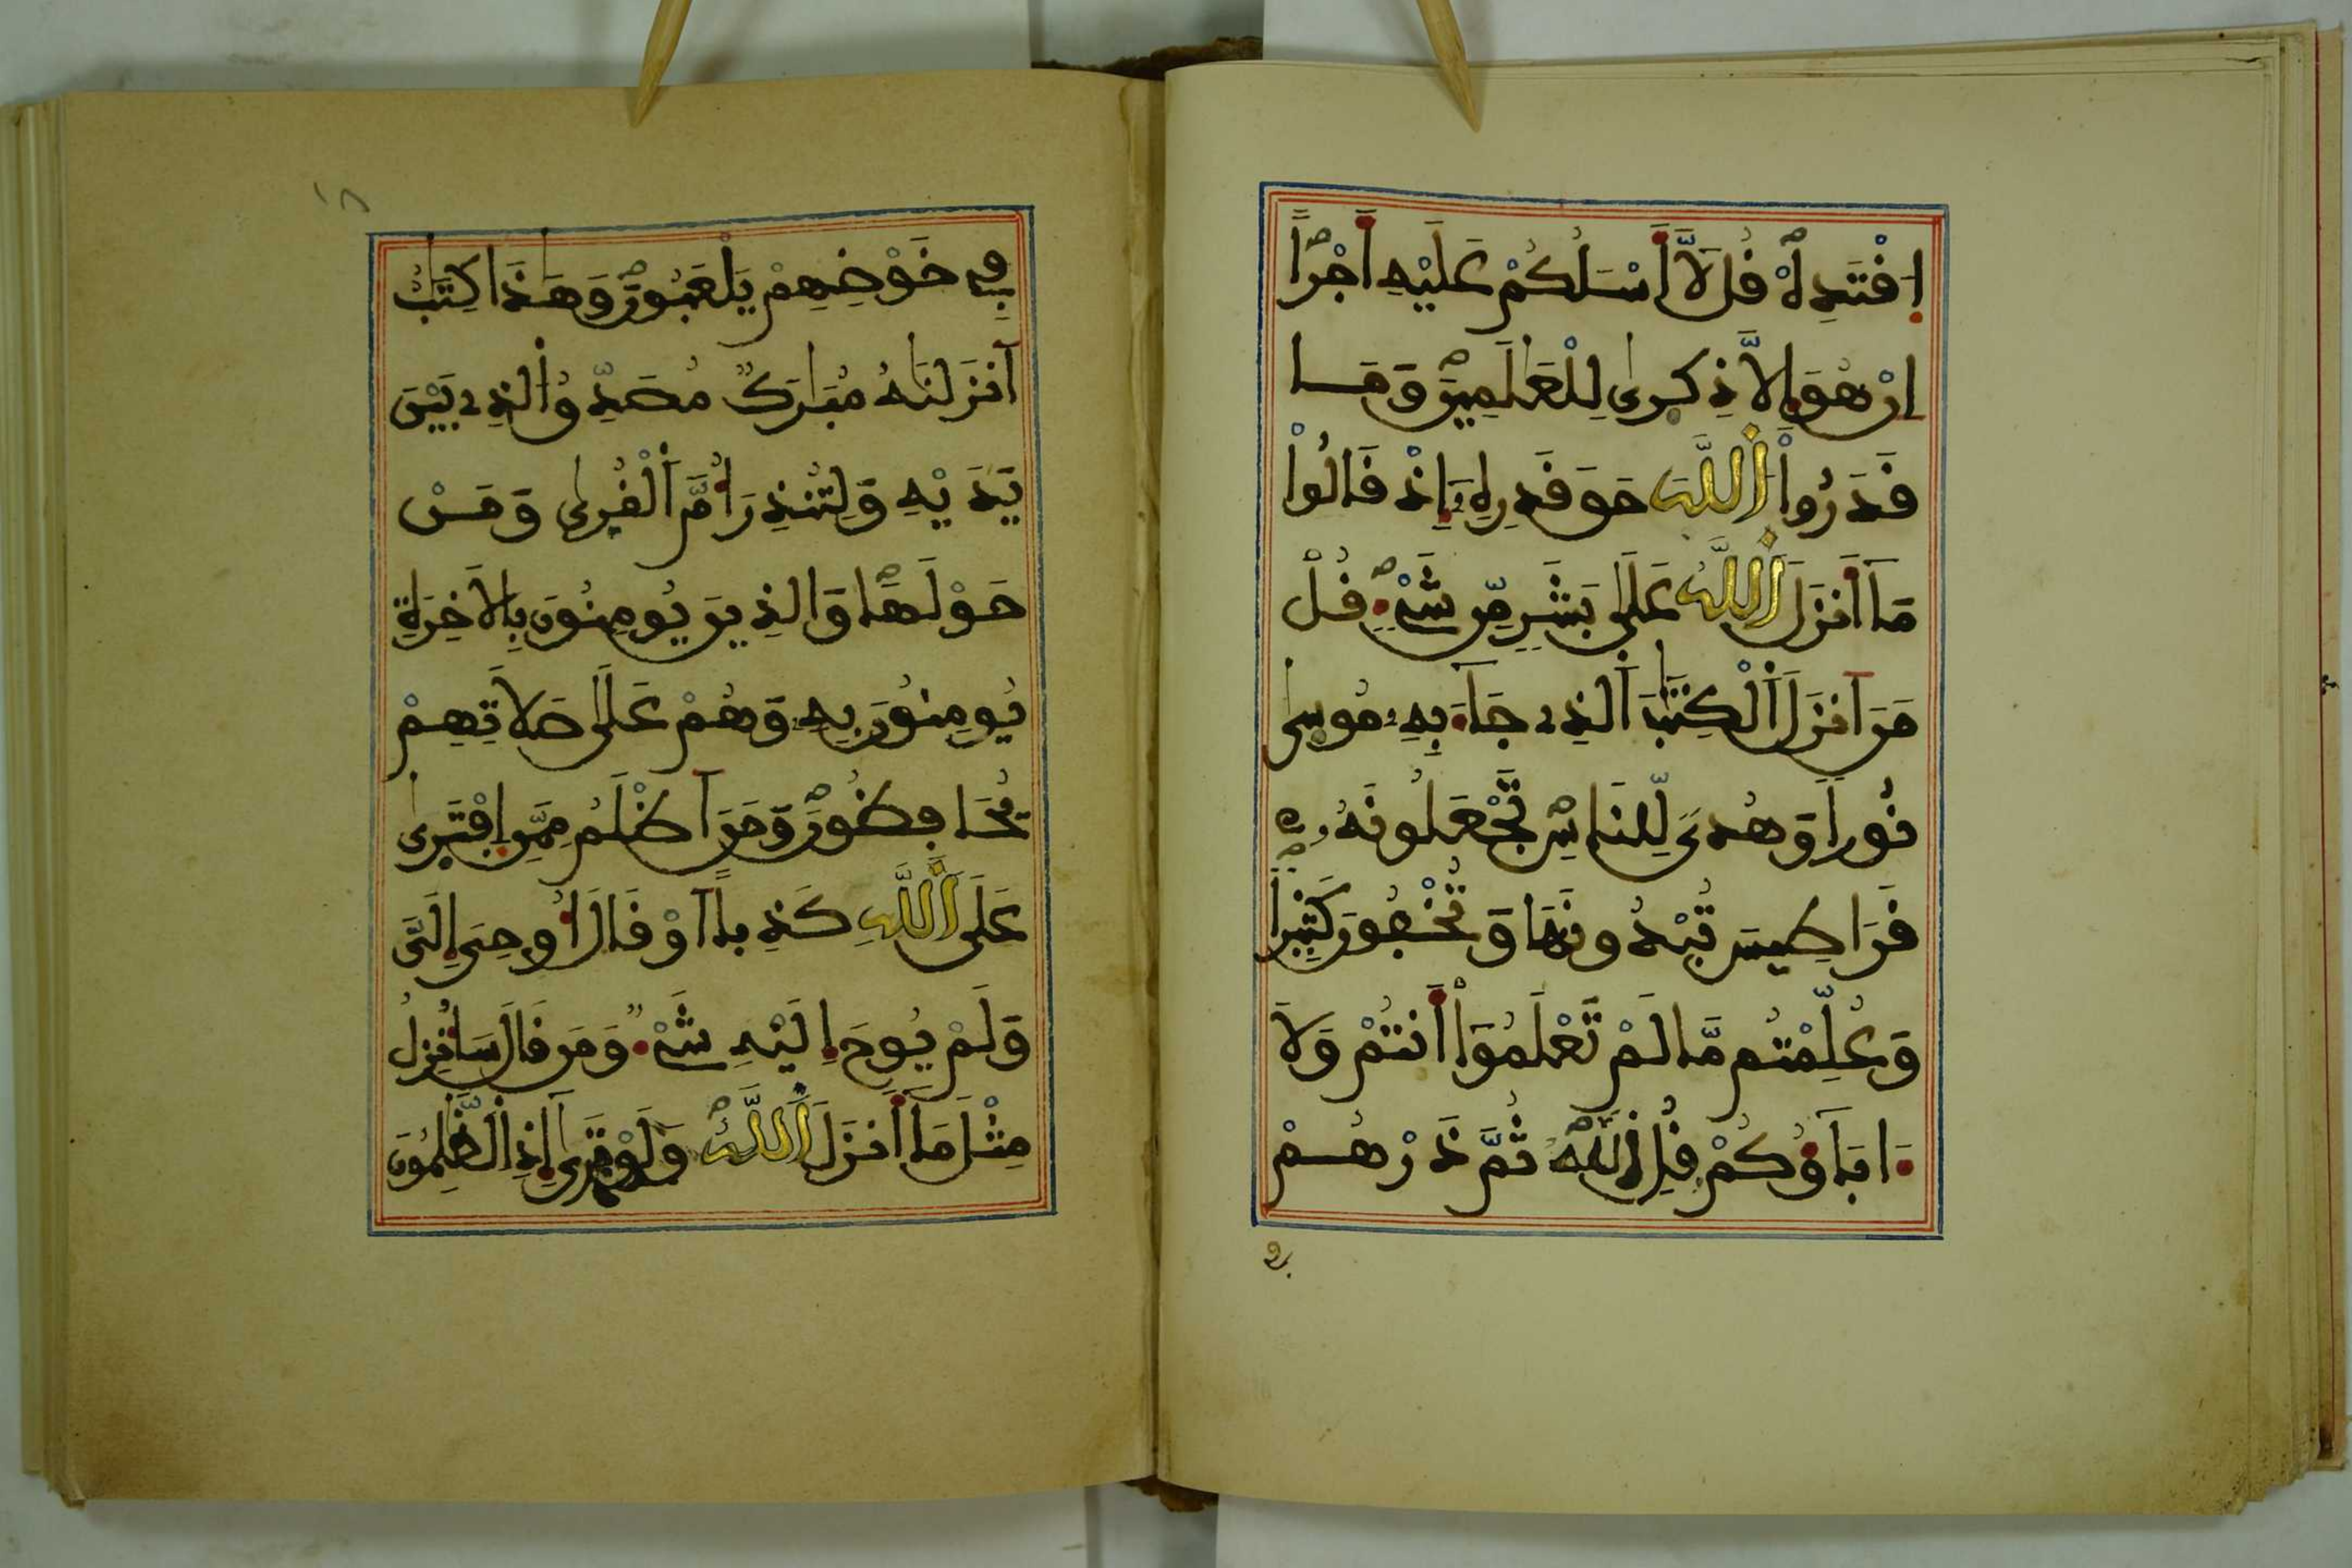 اِفْتَدِهْ فُل لَّا أَسْـَٔلُكُمْ عَلَيْهِ أَجْراً
اِنْ هُوَ إِلَّا ذِكْرىٰ لِلْعَٰلَمِينَ وَمَا
فَدَرُواْ اُللَّهَ حَقَّ فَدْرِهِۦٓ إِذْ فَالُواْ
مَآ أَنزَلَ اَللَّهُ عَلَىٰ بَشَرٍ مِّن شَےْءٍ فُلْ
مَنَ اَنزَلَ اَلْكِتَٰبَ اَلذِے جَآءَ بِهِۦ مُوسىٰ
نُوراً وَهُدىً لِّلنَّاسِ تَجْعَلُونَهُۥ
فَرَاطِيسَ تُبْدُونَهَا وَتُخْفُونَ كَثِيراً
وَعُلِّمْتُم مَّا لَمْ تَعْلَمُوٓاْ أَنتُمْ وَلَآ
ءَابَآؤُكُمْ فُلِ اِللَّهُ ثُمَّ ذَرْهُمْ
فے
فِے خَوْضِهِمْ يَلْعَبُونَ وَهَٰذَا كِتَٰبٌ
اَنزَلْنَٰهُ مُبَٰرَكٌ مُّصَدِّقُ اُلذِے بَيْنَ
يَدَيْهِ وَلِتُنذِرَ أُمَّ اَلْفُرىٰ وَمَنْ
حَوْلَهَا وَالذِينَ يُومِنُونَ بِالَاخِرَةِ
يُومِنُونَ بِهِۦ وَهُمْ عَلَىٰ صَلَاتِهِمْ
يُحَافِظُونَ وَمَنَ اَظْلَمُ مِمَّنِ اِفْتَرىٰ
عَلَى اَللَّهِ كَذِباً اَوْ فَالَ أُوحِىَ إِلَىَّ
وَلَمْ يُوحَ إِلَيْهِ شَےْءٌ وَمَن فَالَ سَأُنزِلُ
مِثْلَ مَآ أَنزَلَ اَللَّهُ وَلَوْ تَرىٰٓ إِذِ اِلظَّٰلِمُونَ